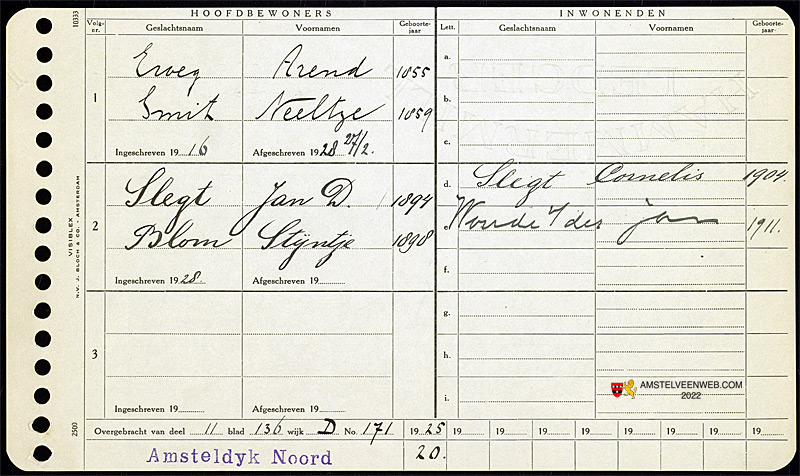 HOOFDBEWONERS
INWONENDEN
10333
Volg-nr.
Geslachtsnaam
Voornamen
Geboorte-jaar
Lett.
Geslachtsnaam
Voornamen
Geboorte-jaar
1
Erweg Arend 1855
Smit Neeltje 1859
Ingeschreven 1916
Afgeschreven 1928 27/2.
a.
b.
c.
2
Slegt Jan D. 1894
Blom Stijntje 1898
Ingeschreven 1928.
Afgeschreven 19
d. Slegt Cornelis 1904.
e. Woude v/der Jan 1911.
f.
3
Ingeschreven 19
Afgeschreven 19
g.
h.
i.
AMSTELVEENWEB.COM
2022
VISIBLEX
N.V. J. BLOCH & CO. - AMSTERDAM
2500
Overgebracht van deel 11 blad 136 wijk D No. 171 1925 19 19 19 19 19 19 19 19
Amsteldyk Noord 20.